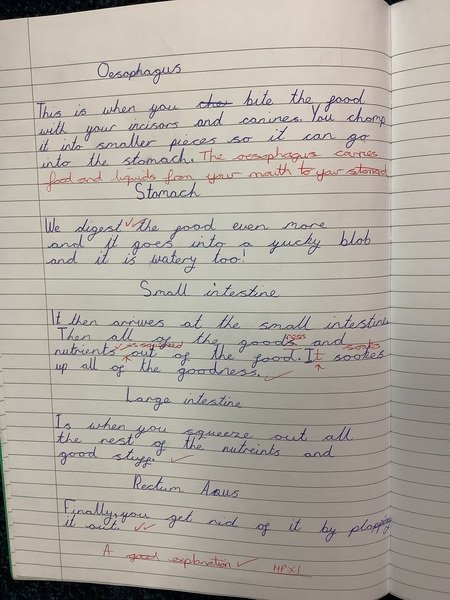 Oesophagus
This is when you chew bite the food
with your incisors and canines. You chomp
it into smaller pieces so it can go
into the stomach. The oesophagus carries
food and liquids from your mouth to your stomach
Stomach
We digest the food even more
and it goes into a yucky blob
and it is watery too!
Small intestine
It then arrives at the small intestine.
Then all of the goodness and
nutrients is squeezed out of the food. It sookes soaks
up all of the goodness.
Large intestine
Is when you squeeze out all
the rest of the nutreints and
good stuff.
Rectum Anus
Finally, you get rid of it by plopping
it out.
A good explanation HPx1